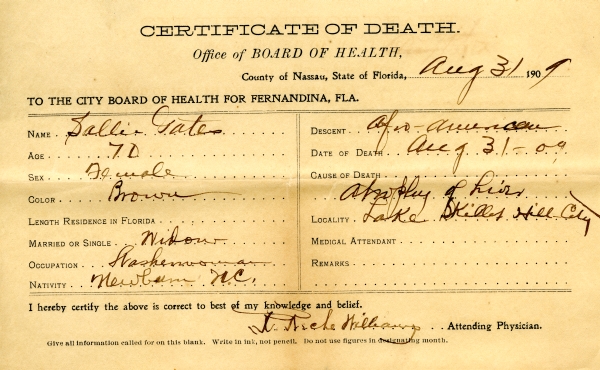 CERTIFICATE OF DEATH.
Office of BOARD OF HEALTH,
County of Nassau, State of Florida, Aug 31 1909
TO THE CITY BOARD OF HEALTH FOR FERNANDINA, FLA.
NAME Sallie Gates
AGE 70
SEX Female
COLOR Brown
LENGTH RESIDENCE IN FLORIDA
MARRIED OR SINGLE Widow
OCCUPATION Washerwoman
NATIVITY Newbern N.C.
DESCENT Afro-American
DATE OF DEATH Aug 31-09
CAUSE OF DEATH
Atrophy of Liver
LOCALITY Hill City
MEDICAL ATTENDANT
REMARKS
I hereby certify the above is correct to best of my knowledge and belief.
Williams Attending Physician.
Give all information called for on this blank. Write in ink, not pencil. Do not use figures in designating month.